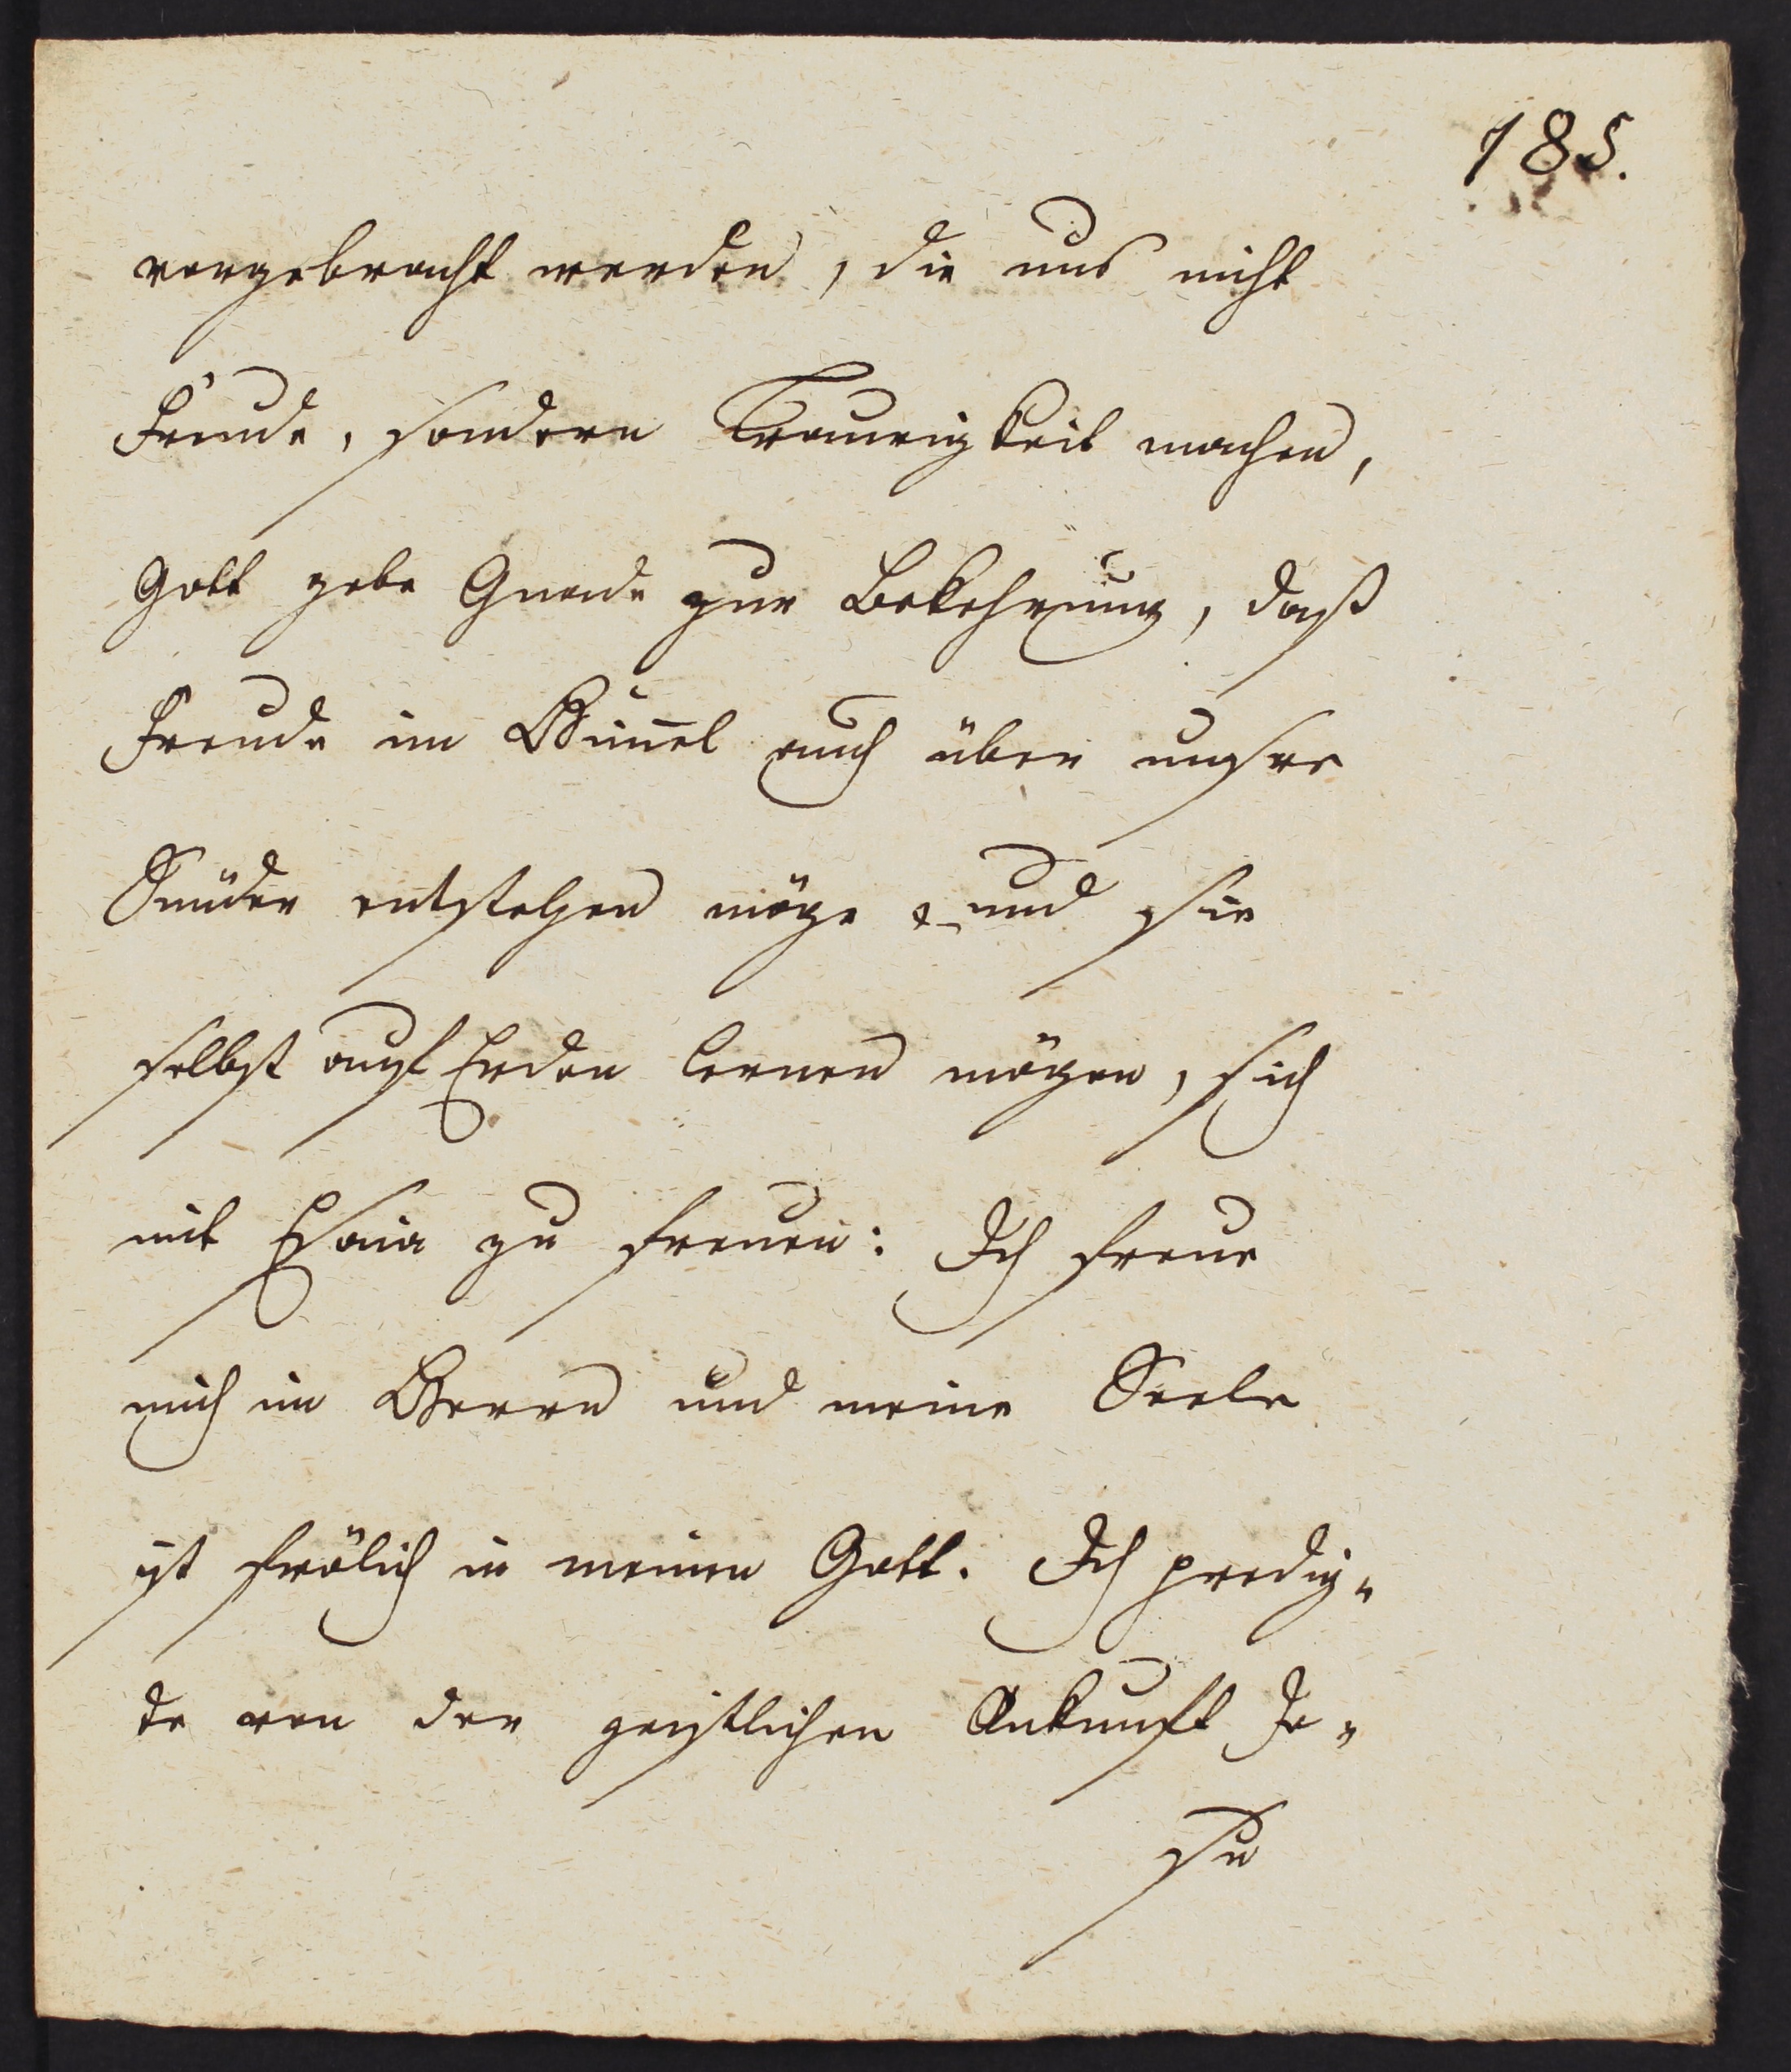 185.
vorgebracht werden, die uns nicht
Freude, sondern Traurigkeit machen,
Gott gebe Gnade zur Bekehrung, daß
Freude im Him̅el auch über unsre
Sünder entstehen möge & und sie
selbst auf Erden lernen mögen, sich
mit Esaia zu freuen: Ich freue
mich im Herrn und meine Seele
ist frölich in meinen Gott. Ich predig„
te von der geistlichen Ankunft Je„
su